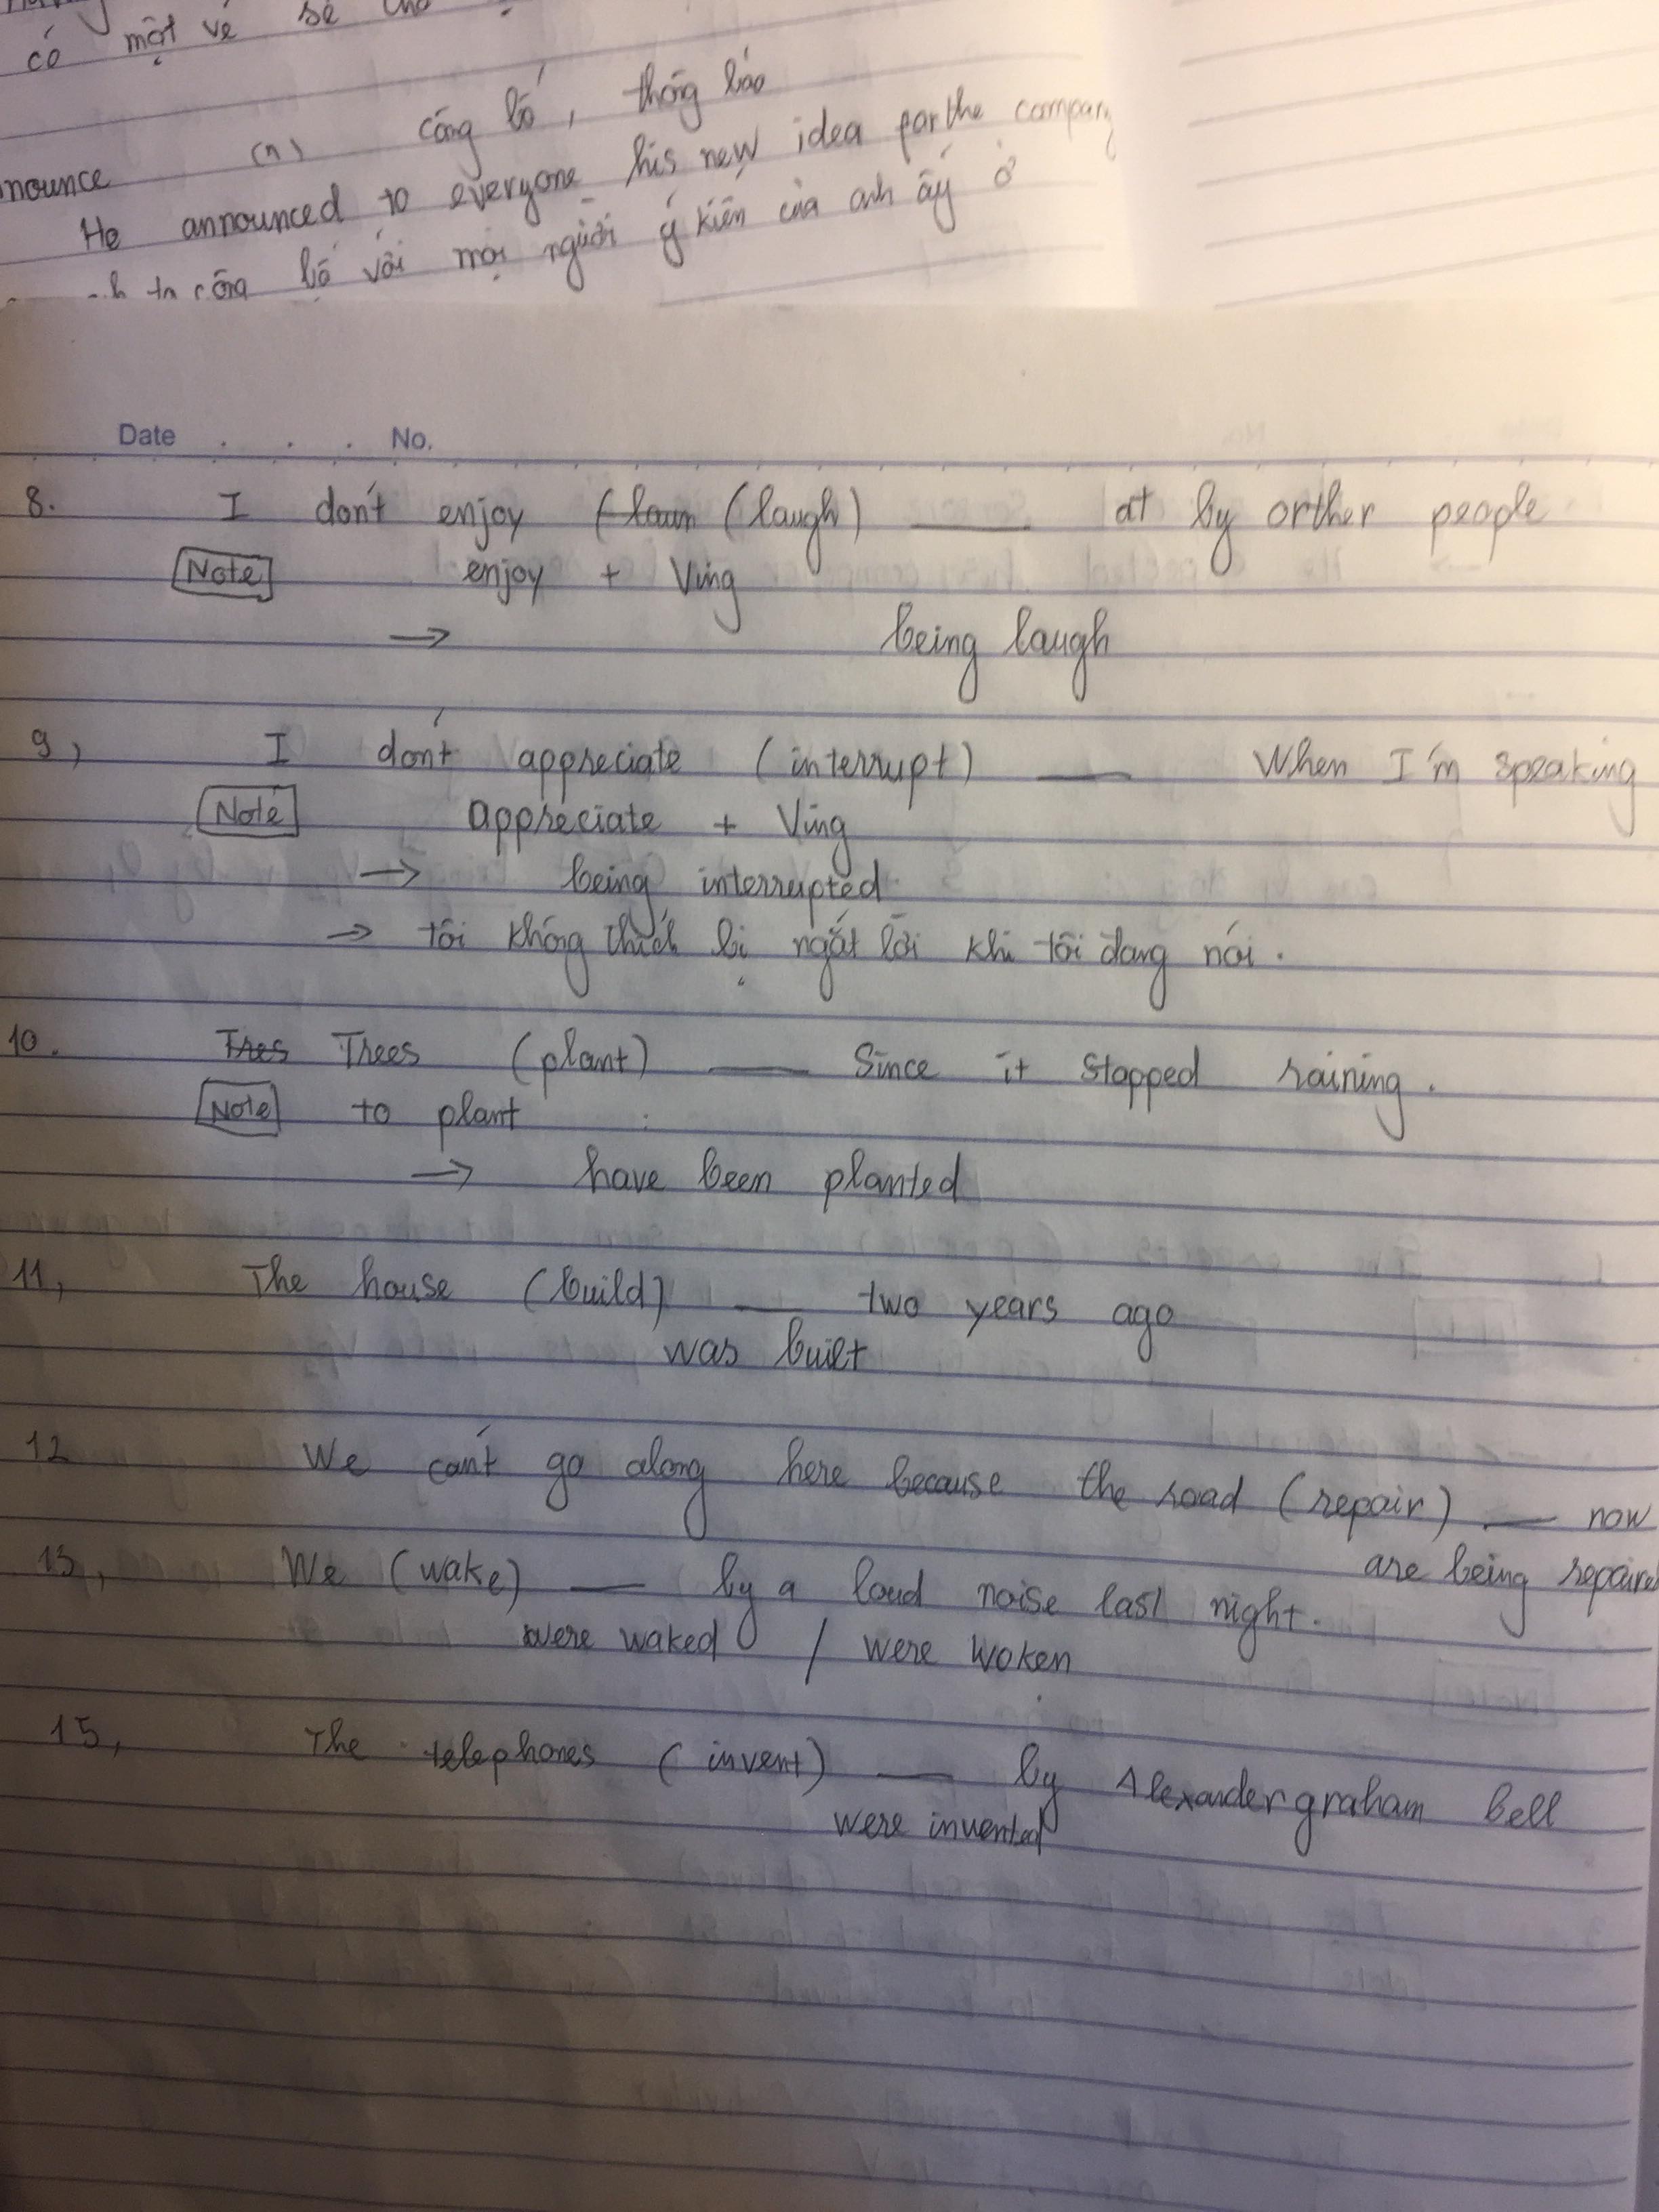 có một vé sẽ
nounce (n) công bố, thông báo
He announced to everyone his new idea for the company
ta công bố với mọi người ý kiến của anh ấy ở
Date . . . No.
8. I don't enjoy (laugh) ___ at by orther people
Note enjoy + Ving
→ being laugh
9, I don't appreciate (interrupt) ___ When I'm speaking
Note appreciate + Ving
→ being interrupted
→ tôi không thích bị ngắt lời khi tôi đang nói.
10. Tres Trees (plant) ___ Since it stopped raining.
Note to plant
→ have been planted
11, The house (build) ___ two years ago
was built
12 We can't go along here because the road (repair) ___ now
are being repaired
13, We (wake) ___ by a loud noise last night.
were waked / were woken
15, The telephones (invent) ___ by Alexander graham bell
were invented